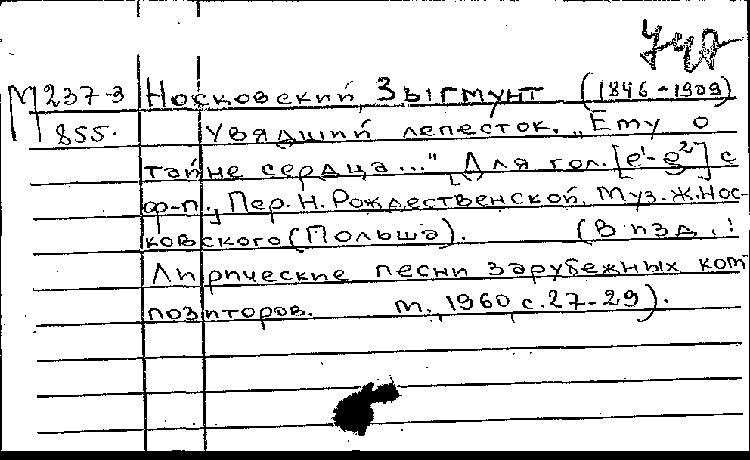 М 237-3 Носковский, Зыгмунт (1846-1909)
855. Увядший лепесток. „Ему о
тайне сердца..." Для гол. [e¹-g²] с
ф-п., Пер. Н. Рождественской. Муз. Ж. Нос-
ковского (Польша). (В изд.:
Лирические песни зарубежных ком
позиторов. М., 1960, с. 27-29).